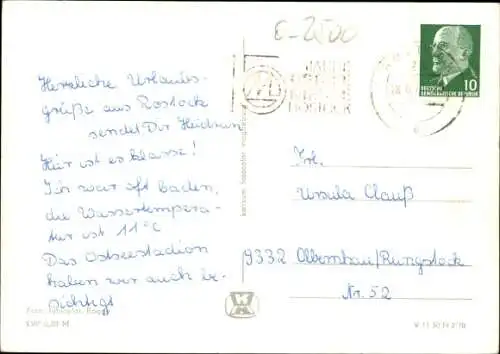 E-2500
Herzliche Urlaubs-
grüße aus Rostock
sendet Dir Heidrun
Hier ist es klasse!
Ich war oft baden,
die Wassertempera-
tur ist 11°C
Das Ostseestadion
haben wir auch be-
sichtigt
10
DEUTSCHE
DEMOKRATISCHE REPUBLIK
Frl.
Ursula Clauß
9332 Olbernhau/Rungstock
Nr. 52
V 11 50